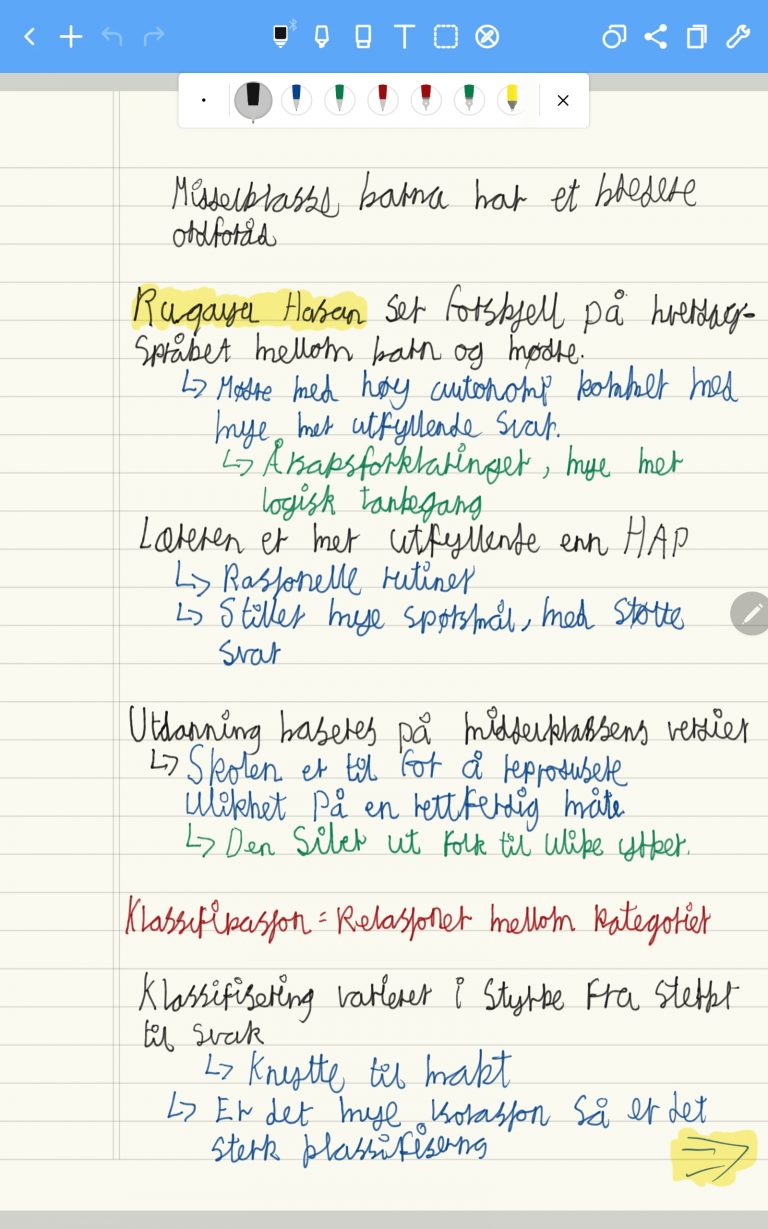 Middelklasse barna har et bredere
ordforåd
Ruqaya Hasan ser forskjell på hverdag-
språket mellom barn og mødre.
↳ Mødre med høy autonomi kommer med
mye mer utfyllende svar.
↳ Årsaksforklaringer, mye mer
logisk tankegang
Læreren er mer utfyllende enn HAP
↳ Rasjonelle rutiner
↳ Stiller mye spørsmål, med støtte
svar
Utdanning baseres på middelklassens verdier
↳ Skolen er til for å reprodusere
ulikhet på en rettferdig måte
↳ Den siler ut folk til ulike yrker.
Klassifikasjon = Relasjoner mellom kategorier
Klassifisering varierer i styrke fra sterkt
til svak
↳ Knytte til makt
↳ Er det mye isolasjon så er det
sterk klassifisering